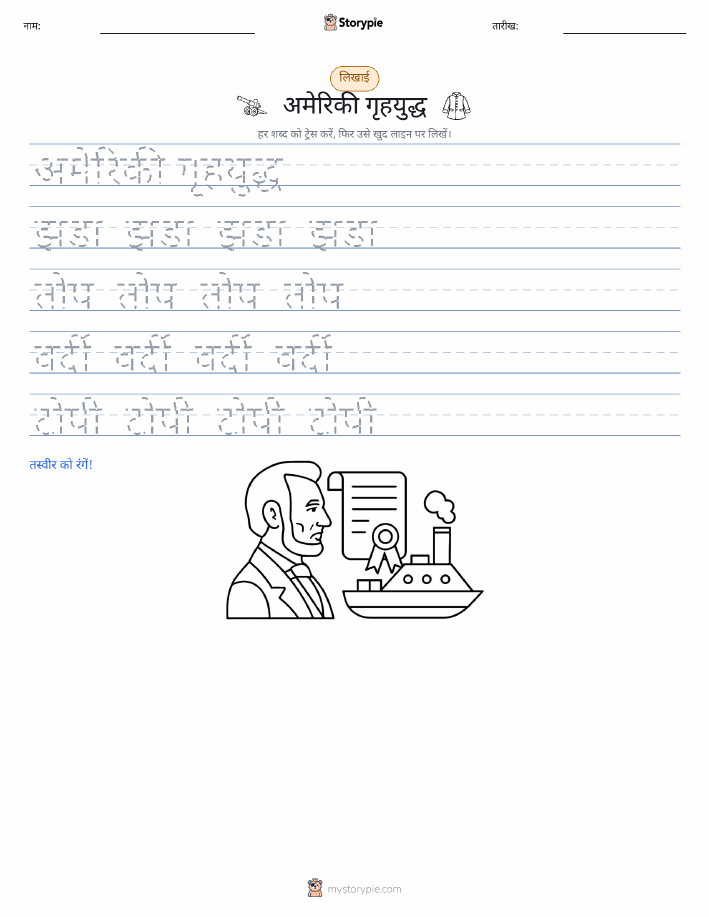 नाम:
Storypie
तारीख:
लिखाई
अमेरिकी गृहयुद्ध
हर शब्द को ट्रेस करें, फिर उसे खुद लाइन पर लिखें।
अमेरिकी गृहयुद्ध
झंडा झंडा झंडा झंडा
तोप तोप तोप तोप
वर्दी वर्दी वर्दी वर्दी
टोपी टोपी टोपी टोपी
तस्वीर को रंगें!
mystorypie.com